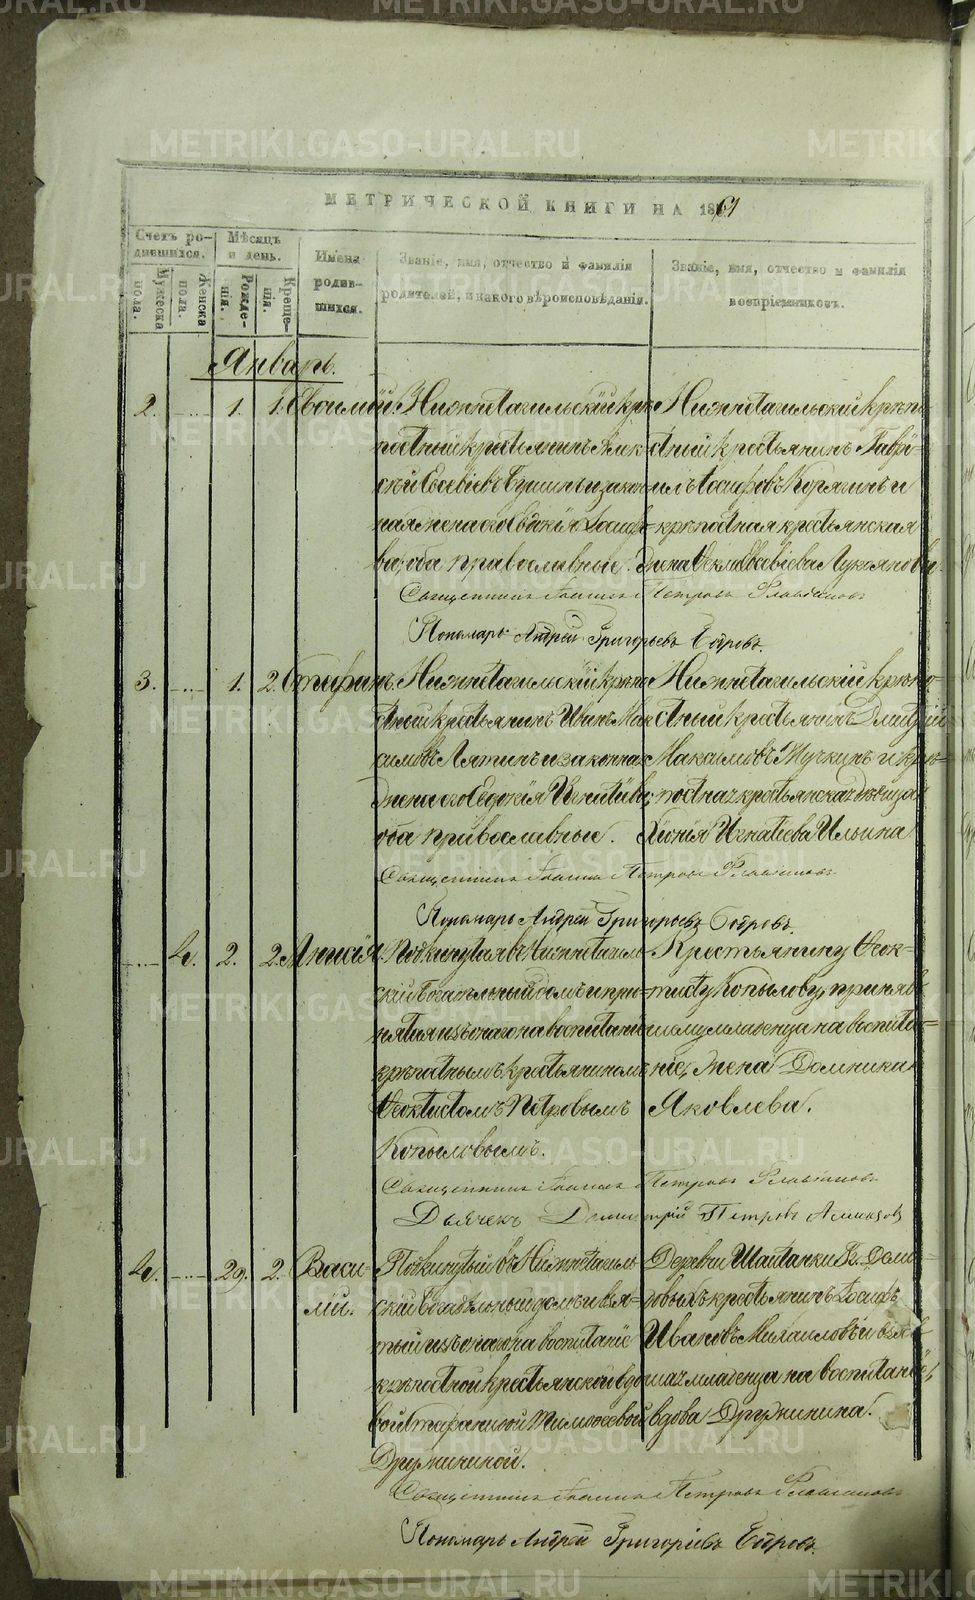 МЕТРИЧЕСКОЙ КНИГИ НА 1861
Счетъ ро-
дившихся.
Мужеска
пола.
Женска
пола.
Мѣсяцъ
и день.
Рожде-
нія.
Креще-
нія.
Имена
родив-
шихся.
Званіе, имя, отчество и фамилія
родителей, и какого вѣроисповѣданія.
Званіе, имя, отчество и фамилія
воспріемниковъ.
Январь.
2.
1.
1.
Нижнетагильскій крѣ-
постный крестьянинъ
и закон-
ная жена его Евдокія
ва, оба православные.
Нижнетагильскій крѣпо-
стный крестьянинъ Гаврі-
илъ и
крѣпостная крестьянская
жена
Священникъ Іоаннъ Петровъ
Пономарь Андрей Григорьевъ
3.
1.
2.
Стефанъ.
Нижнетагильскій крѣпо-
стный крестьянинъ Иванъ Мак-
симовъ Ляпинъ и законная
жена его Евдокія Игнатіева,
оба православные.
Нижнетагильскій крѣпо-
стный крестьянинъ Дмитрій
Максимовъ и крѣ-
постная крестьянская дѣвица
Хіонія Игнатіева Ильина
Священникъ Іоаннъ Петровъ
Пономарь Андрей Григорьевъ
4.
2.
2.
Анисія.
Подкинутая въ Нижнетагиль-
скій богадѣльный домъ и при-
нятая изъ онаго на воспитаніе
крѣпостнымъ крестьяниномъ
Феоктистомъ Петровымъ
Копыловымъ.
Крестьянину Феок-
тисту Копылову, приняв-
шему младенца на воспита-
ніе, жена Домника
Яковлева.
Священникъ Іоаннъ Петровъ
Дьячекъ Димитрій Петровъ
4.
29.
2.
Васи-
лій.
Подкинутый въ Нижнетагиль-
скій богадѣльный домъ и взя-
тый изъ онаго на воспитаніе
крѣпостной крестьянской вдо-
вой Стефанидой Тимофеевой
Дружининой.
Деревни Шайтанки Гг. Деми-
довыхъ крестьянинъ Іосифъ
Ивановъ Михаиловъ и взяв-
шая младенца на воспитаніе,
вдова Дружинина.
Священникъ Іоаннъ Петровъ
Пономарь Андрей Григорьевъ
METRIKI.GASO-URAL.RU